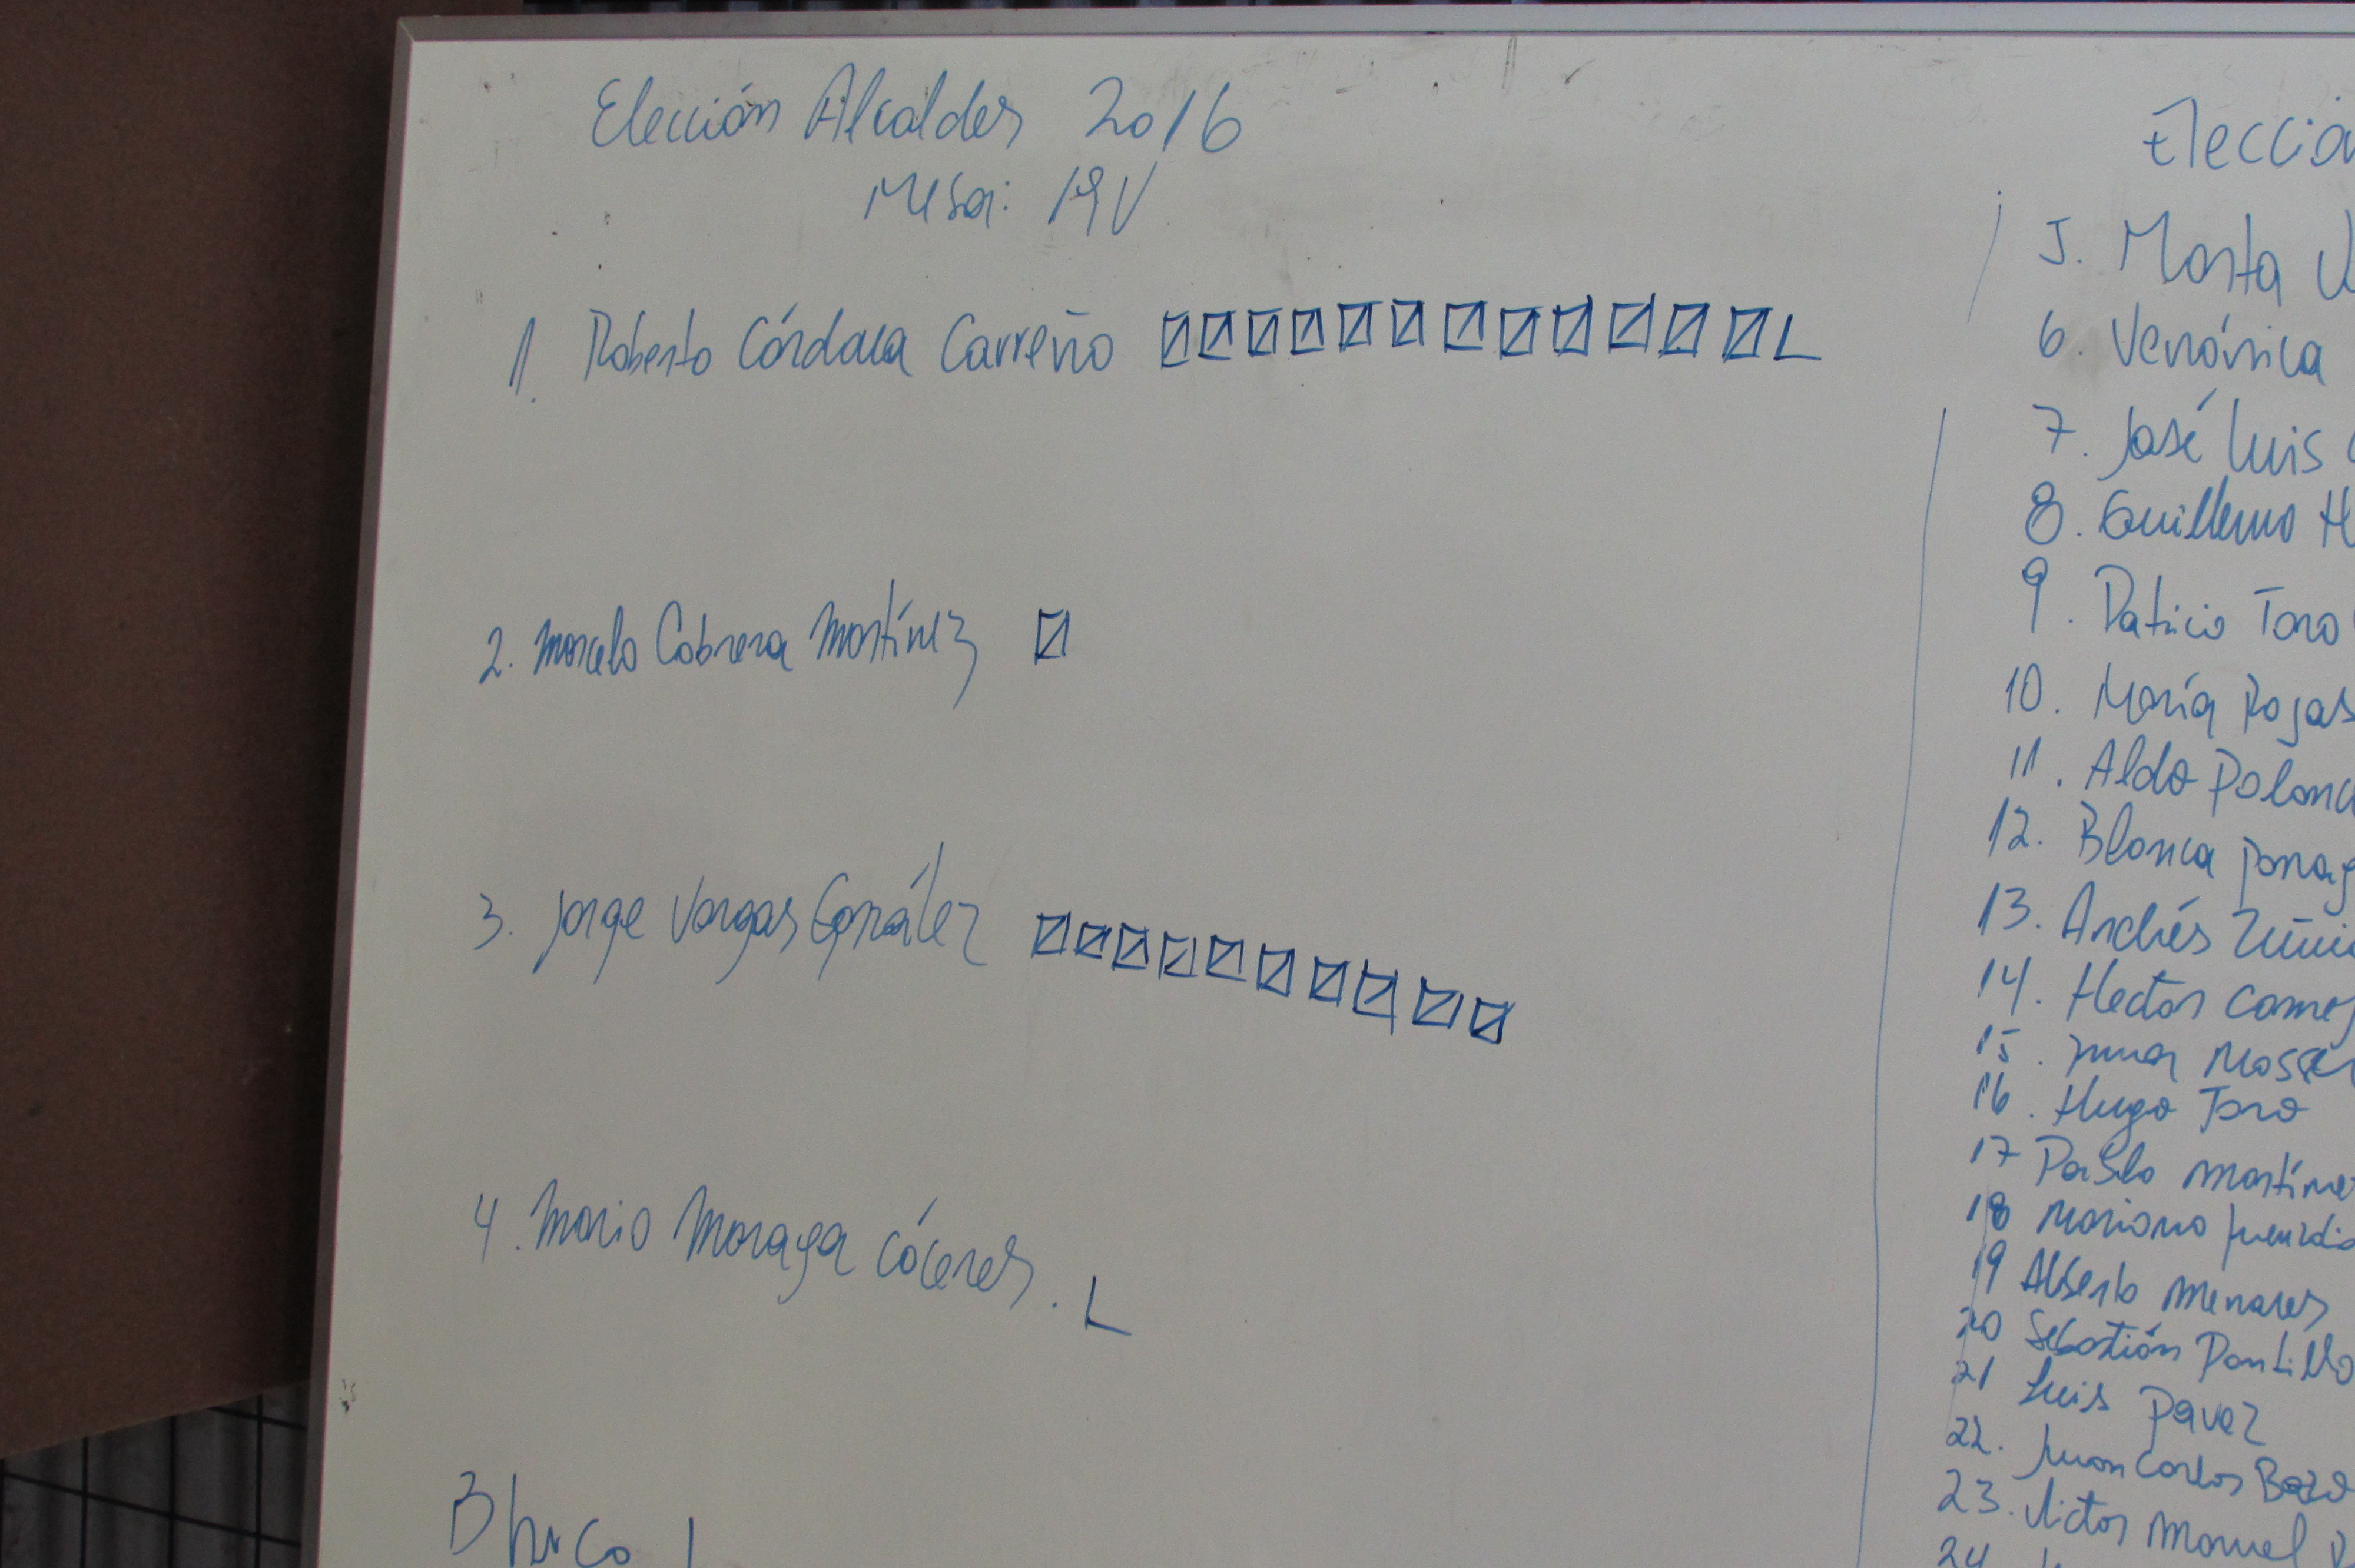 Elección Alcaldes 2016
Mesa: 19V
1. Roberto Córdova Carreño
2. Marcelo Cabrera Martínez
3. Jorge Vargas González
4. Mario Moraga Cáceres.
Blanco
Elecció
5. Marta
6. Verónica
7. José Luis
8. Guillermo H
9. Patricio Toro
10. María Rojas
11. Aldo Polanc
12. Blanca
13. Andrés Zúñi
14. Hector
15.
16. Hugo Toro
17 Pablo Martíne
18 Mariano
19 Alberto Menares
20 Sebastián Pontillo
21 Luis Pavez
22. Juan Carlos Baza
23. Victor Manuel
24